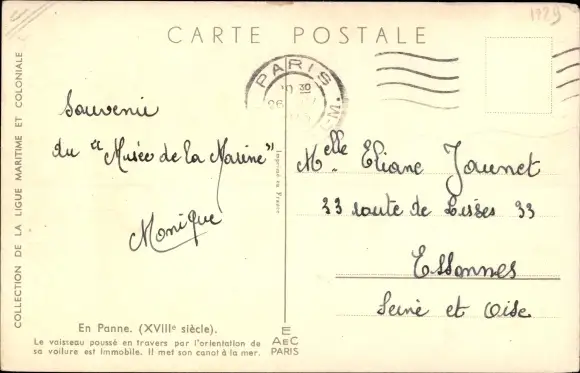 1729
CARTE POSTALE
PARIS
30
26
COLLECTION DE LA LIGUE MARITIME ET COLONIALE
Souvenir
du "Musée de la Marine"
Monique
Imprimé en France
Melle. Eliane Jaunet
33 route de Lisses 33
Essonnes
Seine et Oise
En Panne. (XVIIIe siècle).
Le vaisseau poussé en travers par l'orientation de
sa voilure est immobile. Il met son canot à la mer.
E
AEC
PARIS